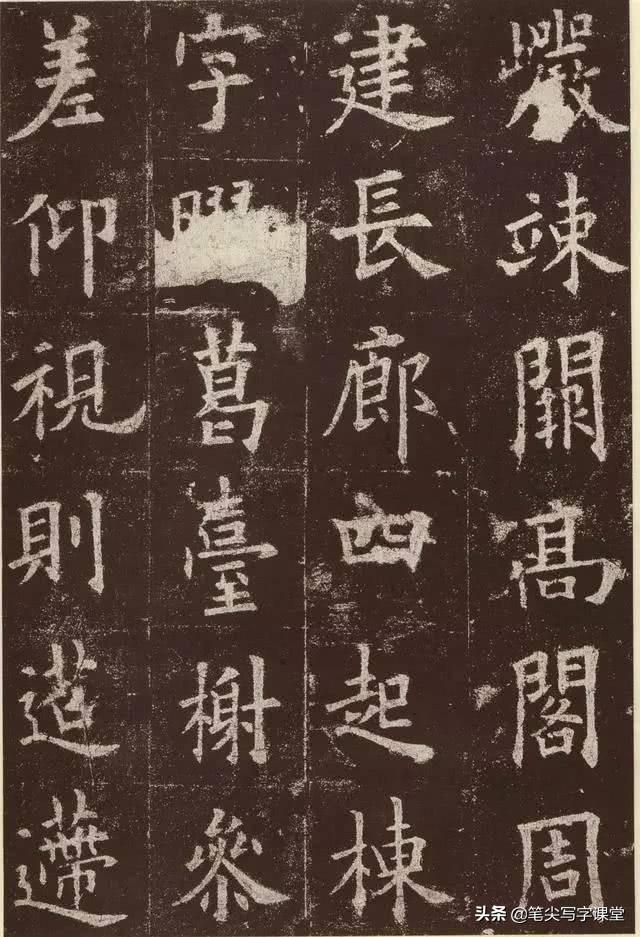 巖竦闕高閣周
建長廊四起棟
宇葛臺榭參
差仰視則迢遰
头条 @笔尖写字课堂